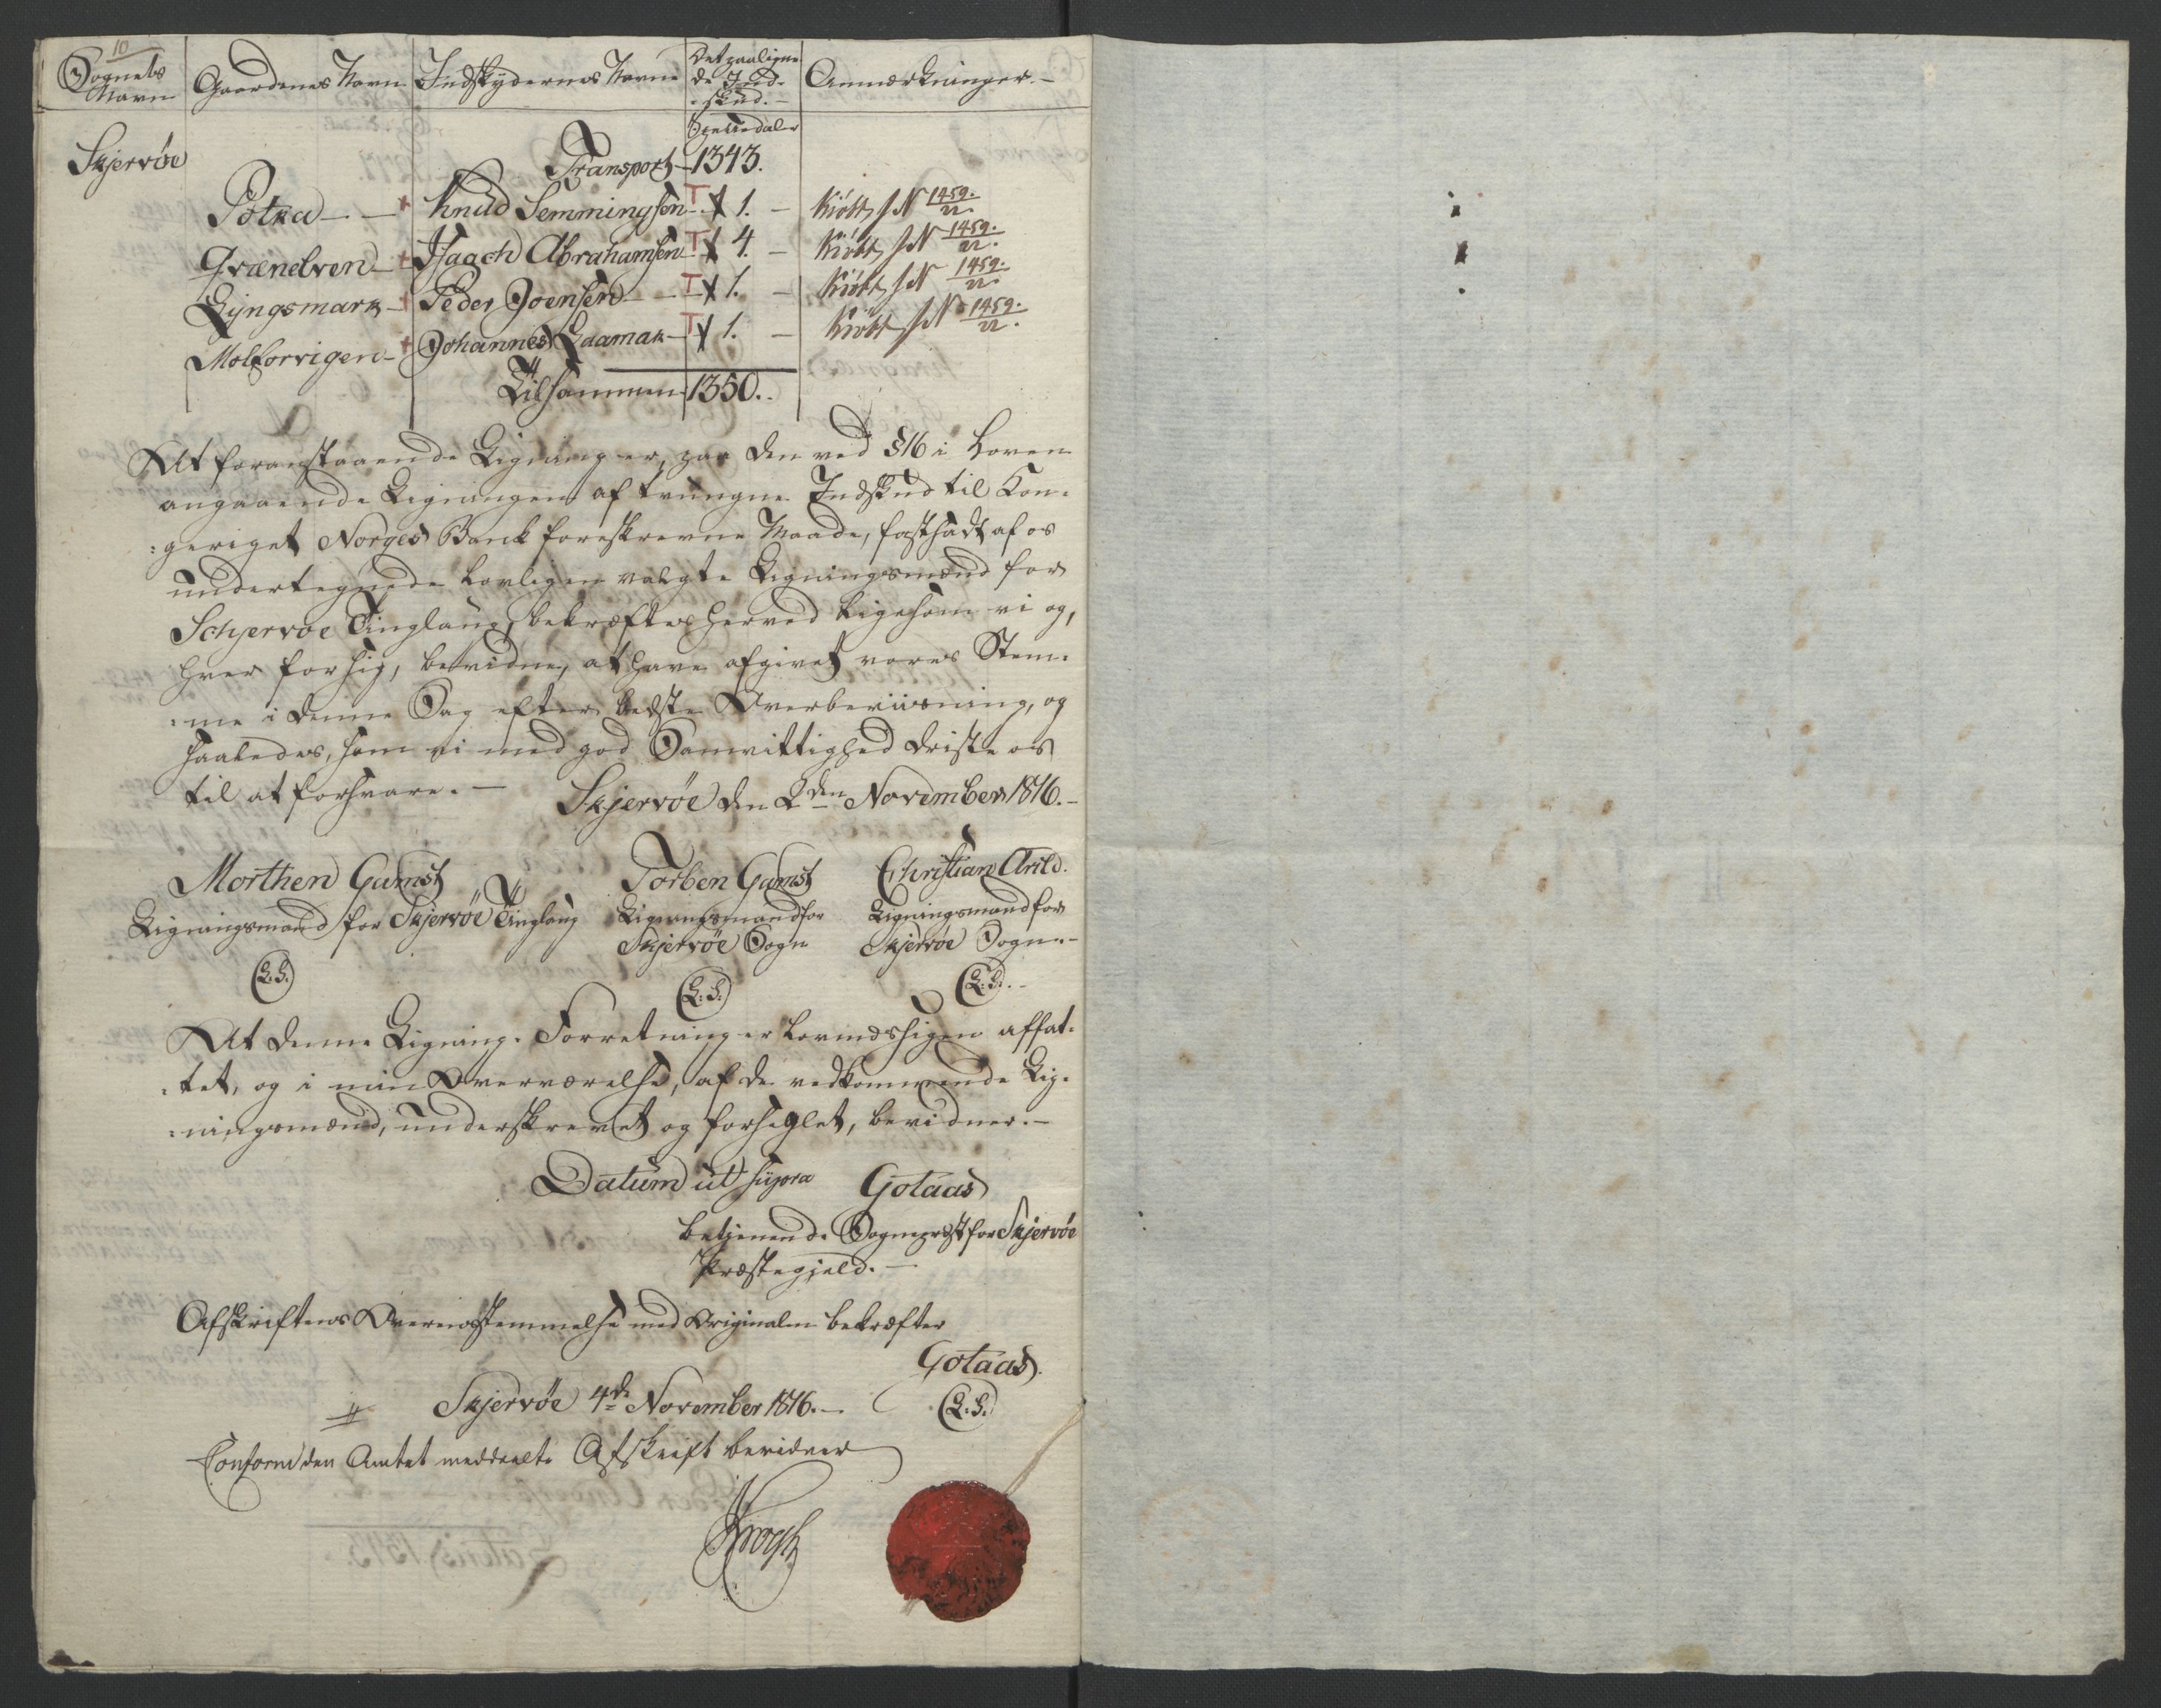 10
Sognets Navn | Gaardenes Navn | Indskydernes Navne | Det paalignede Ind-skud. | Anmærkninger.
Speciedaler
Skjervöe Transport 1343.
Potka + Knud Semmingsen T 1. Kiöbt 1459. 22.
Qvænelven + Isach Abrahamsen T 4. Kiöbt 1459. 22.
Lÿngsmark + Peder Joensen T 1. Kiöbt 1459. 22.
Molforvigen + Johannes T 1. Kiöbt 1459. 22.
Tilsammen 1350.
At foranstaaende Ligning er, paa den ved §16 i Loven
angaaende Ligningen af tvungne Indskud til Kon-
:geriget Norges Bank foreskrevne Maade, fastsadt af os
undertegnede lovligen valgte Ligningsmænd for
Schjervøe Tinglaug, bekræftes herved ligesom vi og,
hver for sig, bevidne, at have afgivet vores Stem-
:me i denne Sag efter bedste Overbeviisning, og
saaledes, som vi med god Samvittighed driste os
til at forsvare. —
Skjervöe den 2den November 1816. —
Morthen Gamst Torben Gamst Christian Arild.
Ligningsmand for Skjervöe Tinglaug Ligningsmand for Ligningsmand for
Skjervöe Sogn Skjervöe Sogn. —
(L.S.) (L.S.) (L.S.) . —
At denne Ligning-Forretning er lovmæssigen affat-
:tet, og i min Overværelse, af de vedkommende Lig-
:ningsmænd, underskrevet og forseglet, bevidner. —
Datum ut supra Gotaas
betjenende Sognepræst for Skjervöe
Præstegjeld. —
Afskriftens Overensstemmelse med Originalen bekræfter
Gotaas.
Skjervöe 4de November 1816. — (L.S.)
Conform den Amtet meddeelte Afskrift bevidner
Krogh